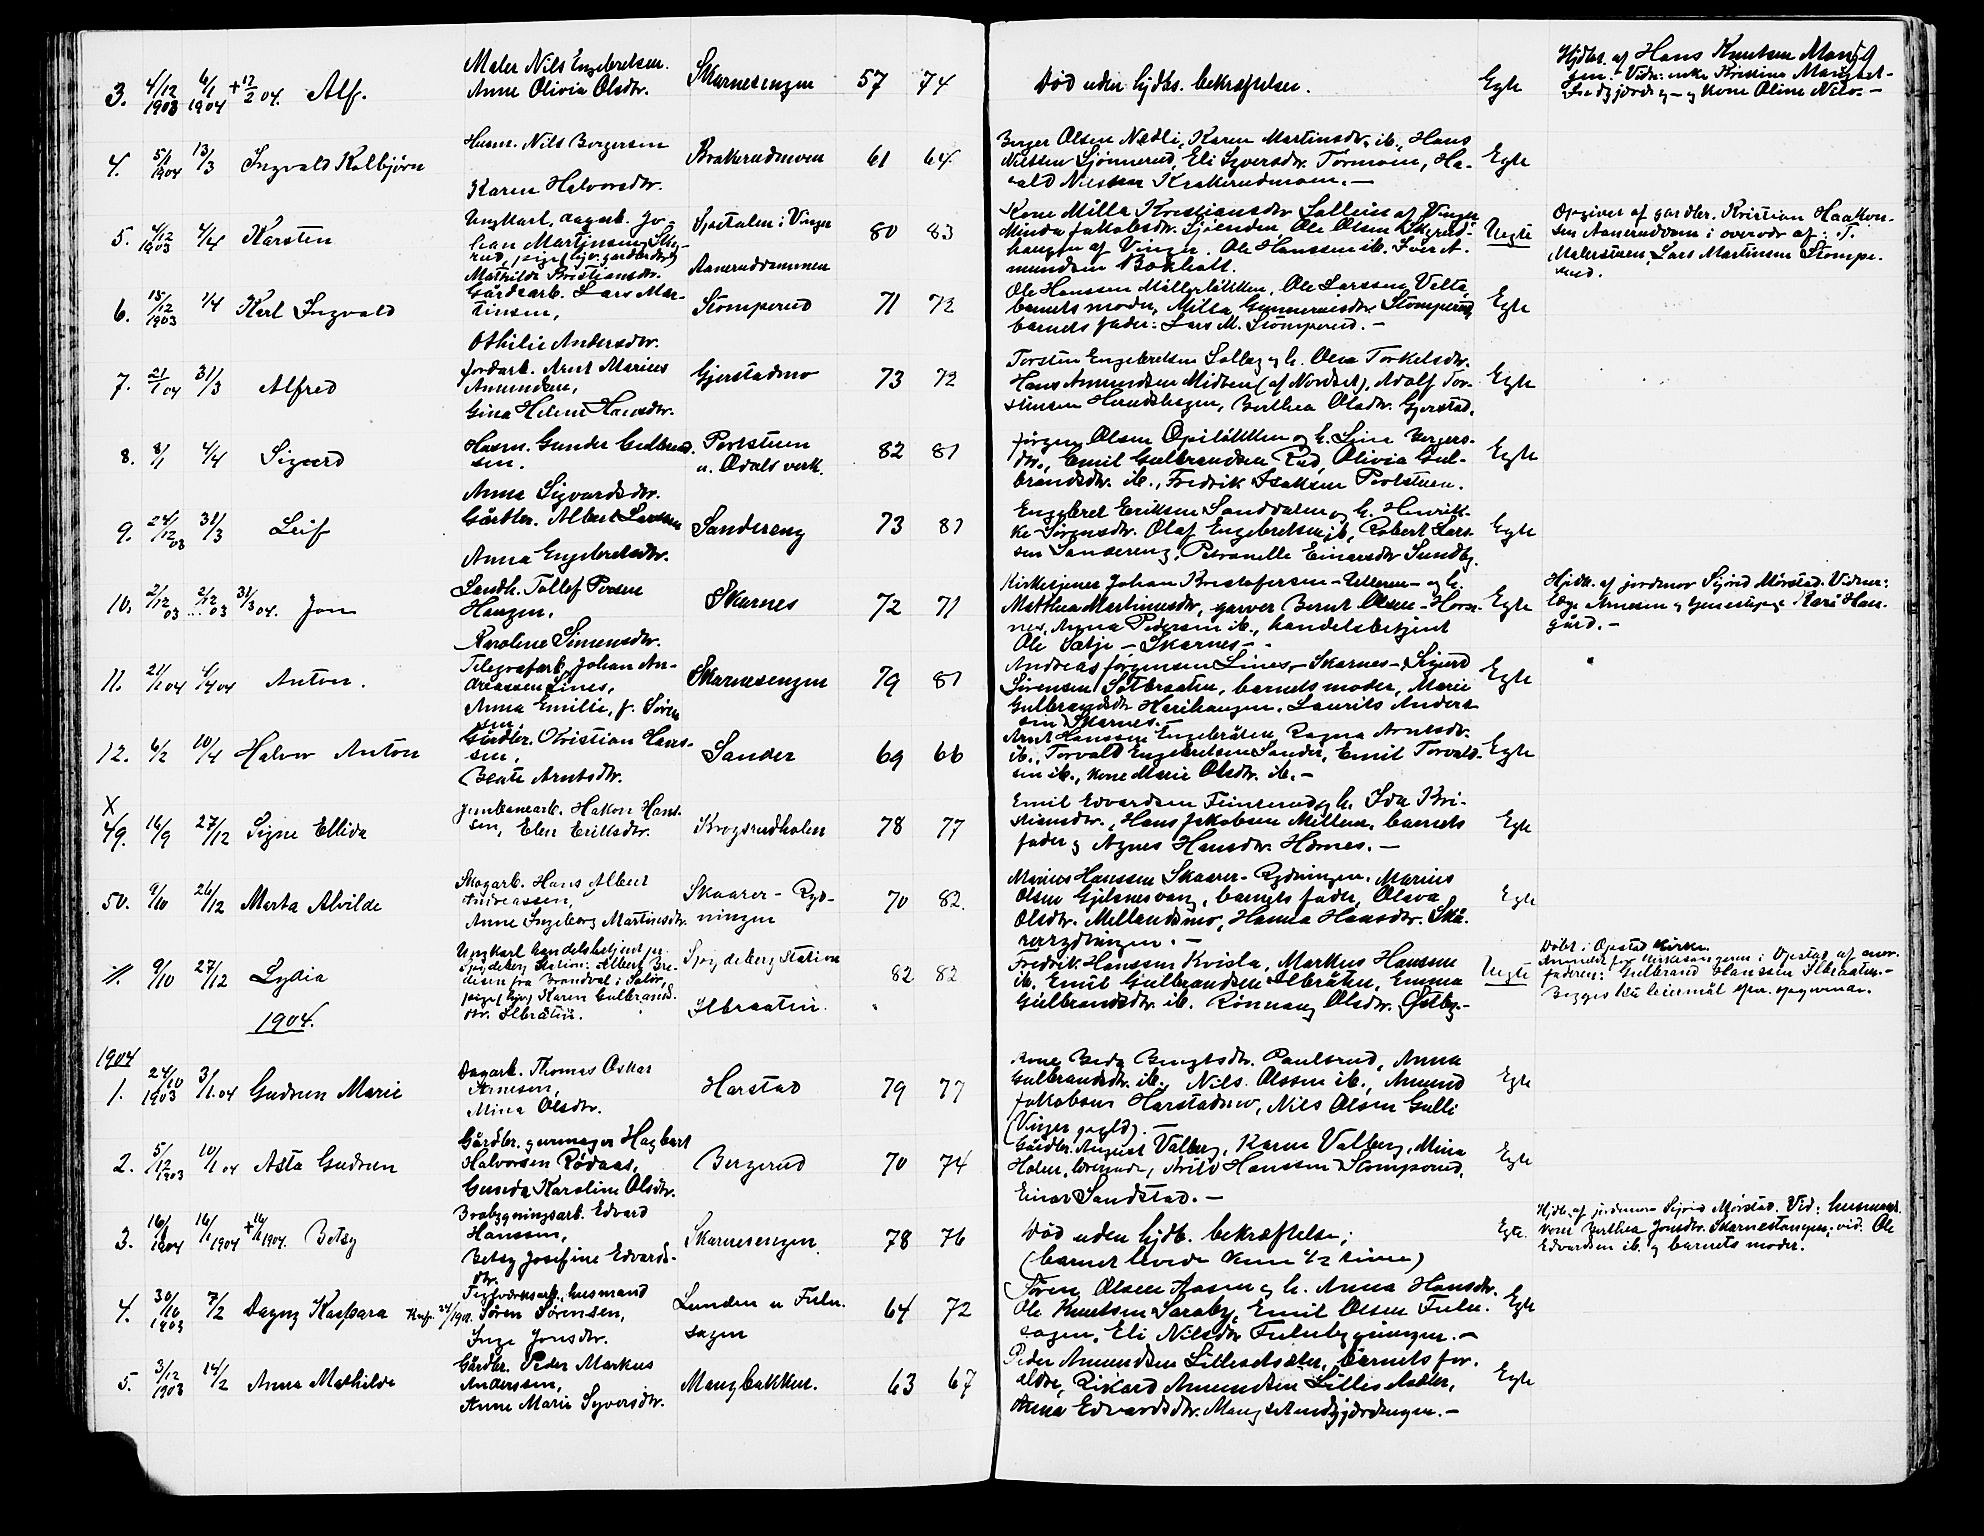 3. 4/12 1903 6/1 1904 + 12/2 04. Alf.
Maler Nils Engebretsen.
Anne Olivia Olsdtr.
Skarnesengen 57 74
Død uden hjdbs. bekræftelse.
Egte
Hjdbt. af Hans Knutsen
Vidn: enke Kristine
og kone Oline Nils. -
4. 5/1 1904 13/3 Ingvald Kolbjørn
Husm. Nils Borgersen
Karen Halvorsdtr.
Brakerudmoen 61 64
Borger Olsen Nædli, Karen Martinsdtr. ib., Hans
Nilssen Sjønnerud, Eli Syversdtr. Tormoen, Ha-
rald Nilssen Krakerudmoen. -
Egte
5. 4/12 1903 4/4 Karsten
Ungkarl, dagarb. Jo-
han Martinsen
rud, pige (hjv. gardbrdtr.)
Mathilde Kristiansdtr.
i Vinger
Aanerudammen
80 83
Kone Milla Kristiansdtr. Sollien af Vinger
Minda Jakobsdtr. Sjøenden, Ole Olsen
haugen af Vinger, Ole Hanssen ib. Iver A-
mundsen Boxhalt.
Uegte
Opgivet af gardbr. Kristian Haakon-
sen Aanerudammen i overvær af: T.
Malerstuen, Lars Martinsen Stompe-
rud.
6. 15/12 1903 1/4 Karl Ingvald
Gårdsarb. Lars Mar-
tinsen,
Othilie Andersdtr.
Stomperud 71 72
Ole Hanssen Møllerløkken, Ole Larssen Velta,
barnets moder, Milla Gunnerusdtr. Stomperud,
barnets fader: Lars M. Stomperud. -
Egte
7. 21/1 04 31/3 Alfred
Jordarb. Arnt Marius
Amundsen,
Gina Helene Hansdtr.
Gjerstadmo 73 72
Torsten Engebretsen Solberg og h. Olea Torkelsdtr.
Hans Amundsen Midtsen (af Nordset), Adolf Tor-
stensen Herudshagen, Berthea Olsdtr. Gjerstad.
Egte
8. 8/1 4/4 Sigurd
Husm. Gunder Gulbrand-
sen.
Anna Sigvardsdtr.
Perlstuen
u. Odals verk.
82 81
Jørgen Olsen Opiløkken og h. Lina Bergers-
dtr., Emil Gulbrandsen Rud, Olivia Gul-
brandsdtr. ib., Fredrik Isaksen Perlstuen.
Egte
9. 24/12 03 31/3 Leif
Gårdbr. Albert Larssen
Anna Engebretsdtr.
Sandereng 73 81
Engebret Eriksen Sanddalen og h. Henrik-
ke Sørensdtr. Olaf Engebretsen ib., Robert Lars-
sen Sandereng, Petronelle Einarsdtr. Sundby.
Egte
10. 2/12 03 2/12 03 31/3 04. Jon
Landh. Tollef Persen
Haugen,
Karoline Simensdtr.
Skarnes 72 71
Kirketjener Johan Kristofersen - Ulleren - og h.
Matthea Martinusdtr., garver Bernt Olsen - Hor-
nes, Anna Pedersen ib., handelsbetjent
Ole Sætje - Skarnes -
Egte
Hjdb. af jordmor Sigrid Mørstad. Vidner:
læge Arnesen og tjenestepige Kari Han-
gård. -
11. 21/1 04 4/4 04 Anton.
Telegrafarb. Johan An-
dreassen Lines,
Anna Emilie, f. Søren-
sen.
Skarnesengen 79 81
Andreas Jørgensen Lines, - Skarnes - Sigurd
Sørensen Sølbraaten, barnets moder, Marie
Gulbrandsdtr. Harihaugen, Laurits Anders-
sen Skarnes. -
Egte
12. 6/2 10/4 Halvor Anton
Gårdbr. Christian Hans-
sen,
Beate Arntsdtr.
Sander 69 66
Arnt Hanssen Engebråten, Ragna Arntsdtr.
ib., Torvald Engebretsen Sander, Emil Torvald-
sen ib., kone Marie Olsdtr. ib. -
Egte
X
49. 16/9 27/12 Signe Ellida
Jernbanearb. Hakon Hans-
sen, Elen Eriksdtr.
Krogsrudholen 78 77
Emil Edvardsen Finserud og h. Ida Kri-
stiansdtr., Hans Jakobsen Mellem, barnets
fader og Agnes Hansdtr. Hornes. -
Egte
50. 9/10 26/12 Marta Alvilde
Skogarb. Hans Albert
Andreassen,
Anne Ingeborg Martinsdtr.
Skaarer - Ryd-
ningen
70 82.
Marius Hanssen Skaarer - Rydningen, Marius
Olsen Gjelsnesvang, barnets fader, Olava
Olsdtr. Mellandsmo, Hanna Hansdtr. Skå-
rerrydningen. -
Egte
11. 9/10 27/12 Lydia
Ungkarl handelsbetjent pr.
Spydeberg Station: Albert Bre-
desen fra Brandval i Solør,
pige (hjv) Karen Gulbrands-
dtr. Ilbråten.
Spydeberg Station
Ilbraaten.
82 82
Fredrik Hanssen Kvisla, Markus Hanssen
ib. Emil Gulbrandsen Ilbråten, Emma
Gulbrandsdtr. ib. Rønnaug Olsdtr. Østby. -
Uegte
Døbt i Opstad kirke.
Anmeldt for kirkesangeren i Opstad af mor-
faderen: Gulbrand Hanssen Ilbraaten. -
Begges 1ste leiermål efter opgivende.
1904.
1904
1. 24/10 1903 3/1 04 Gudrun Marie
Dagarb. Thomas Oskar
Arnesen,
Mina Olsdtr.
Harstad 79 77
Kone Beda Bengtsdtr. Paulsrud, Anna
Gulbrandsdtr. ib., Nils Olssen ib., Amund
Jakobsen Harstadmo, Nils Olsen Gulli
(Vinger pgjld). -
Egte
2. 5/12 1903 10/1 04 Asta Gudrun
Gårdbr. garmager Hagbart
Halvorsen Rødaas,
Gunda Karoline Olsdtr.
Bergerud 70 74
Gårdbr. August Valberg, Karen Valberg, Mina
Holen, lærerinde, Arild Hanssen Stomperud,
Einar Sandstad. -
Egte
3. 16/1 1904 16/1 1904 + 16/1 1904. Betsy
Brobygningsarb. Edvard
Hanssen,
Betsy Josefine Edvards-
dtr.
Skarnesengen. 78 76
Død uden hjdb. bekræftelse;
(barnet levede kun 1/2 time)
Egte.
Hjdb. af jordmor Sigrid Mørstad. Vid: husmands
kone Berthea Jonsdtr. Skarnestangen, vid. Ole
Edvardsen ib. og barnets moder.
4. 30/10 1903 7/2 Dagny Kaspara
Teglværksarb., husmand
Søren Sørensen,
Inge Jonsdtr.
Lunden u Fulu-
sagen
64 72
Søren Olsen Aasen og h. Anna Hansdtr.
Ole Knutsen Saraby, Emil Olsen Fulu-
sagen, Eli Nilsdtr. Fulubygningen. -
Egte
5. 3/12 1903 14/2 Anna Mathilde
Gårdbr. Peder Markus
Anderssen,
Anne Marie Syversdtr.
Mangbakken. 63 67
Peder Amundsen Lilleseksæter, barnets for-
ældre, Rikard Amundsen
Anna Edvardsdtr.
Egte